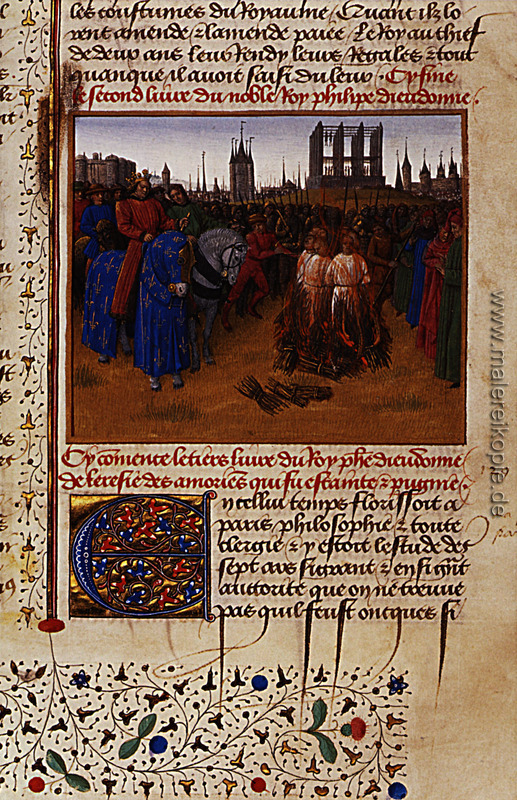 les coustumes du Royaume / Quant ilz lo
rent amende / & lamende paiee / Le Roy au chief
de deux ans leur Rendy leurs Regales & tout
quanque il avoit saisi du leur · Cy fine
le second livre du noble Roy philipe dieudonne ·
Cy comence le tiers livre du Roy phe dieudonne
de leresie des amoriens qui fu estainte & pugnie ·
En cellui temps florissoit a
paris / philosophie & toute
clergie / & y estoit lestude des
sept ars si grant / & en si grant
auctorite que on ne treuve
pas quil feust oncques si
www.malereikopie.de